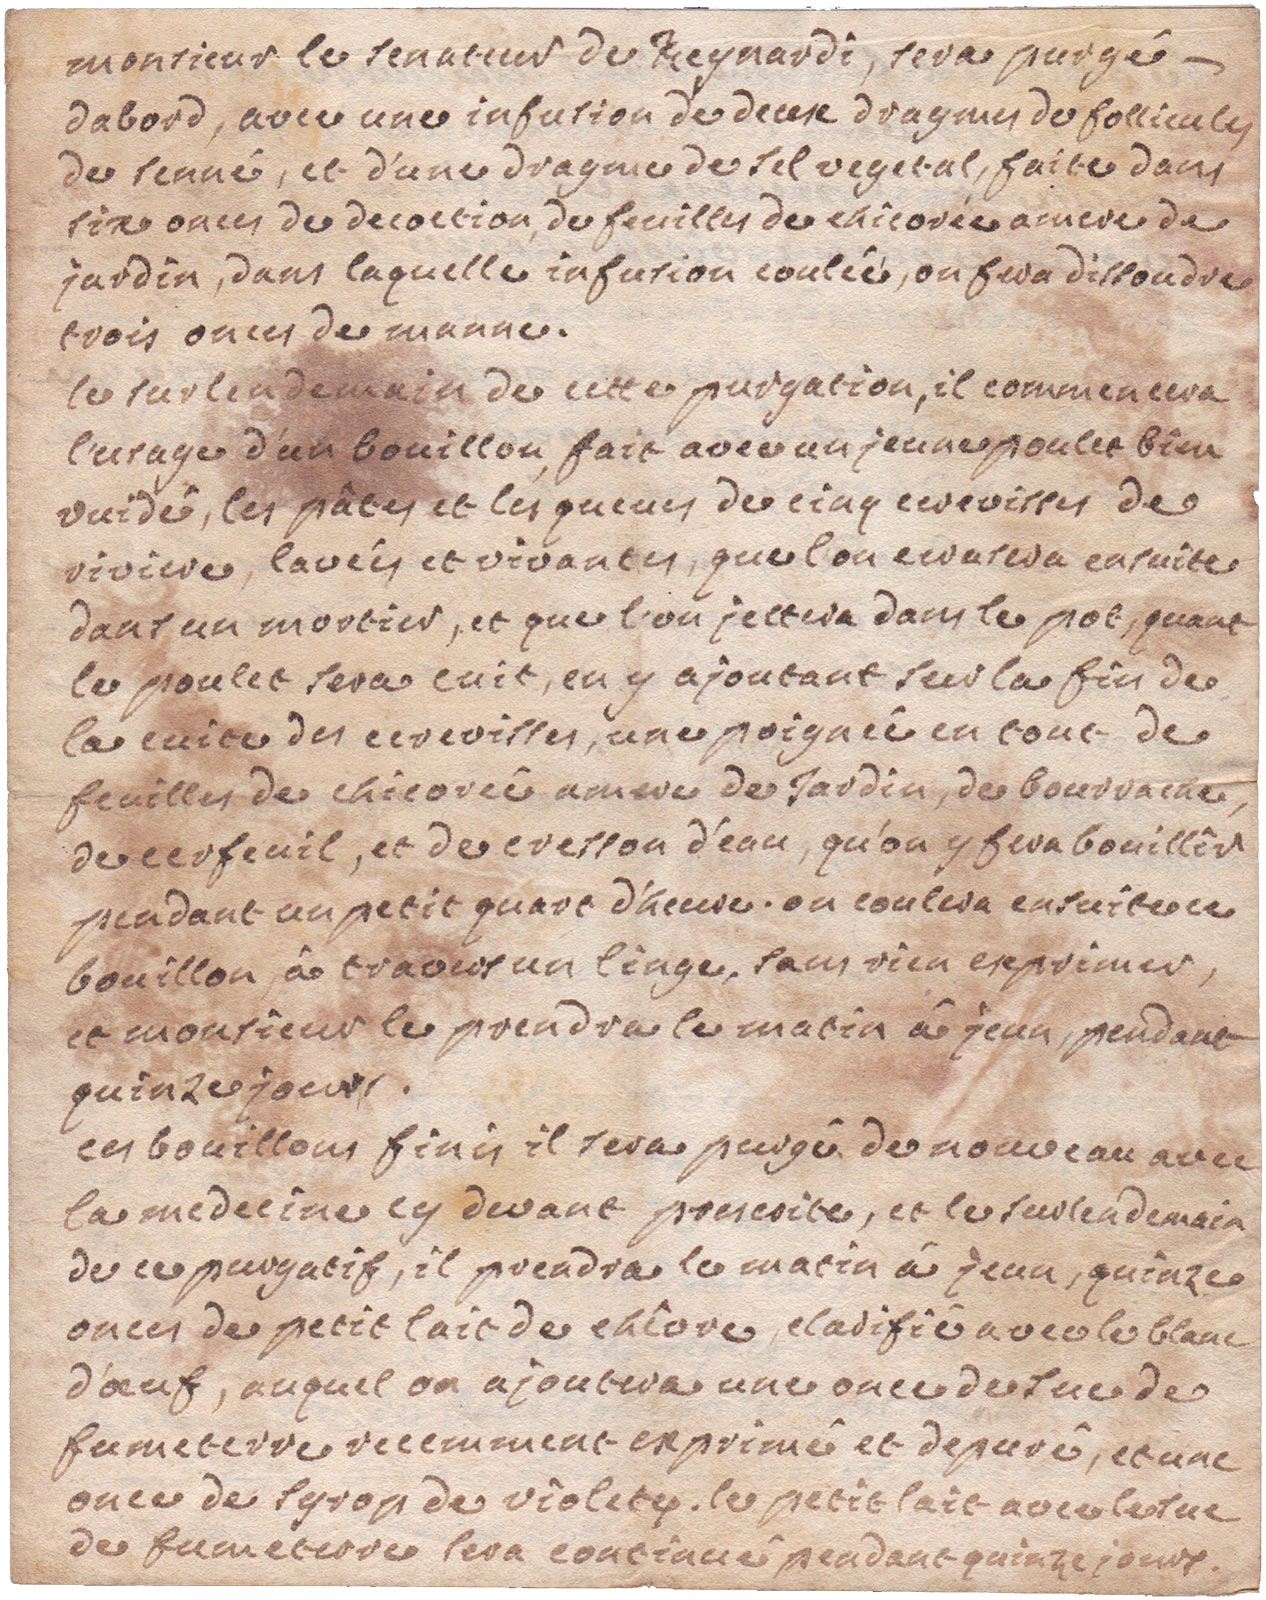 monsieur le senateur de Reynardi, sera purgê
dabord, avec une infusion de deux dragmes de follicules
de sennê, et d'une dragme de sel vegetal, faite dans
six onces de decoction, de feuilles de chicorée amere de
jardin, dans laquelle infusion couléê, on fera dissoudre
trois onces de manne.
le surlendemain de cette purgation, il commencera
l'usage d'un bouillon, fait avec un jeune poulet bien
vuidê, les pâtes et les queues de cinq ecrevisses de
riviere, lavêes et vivantes, que l'on ecrasera ensuite
dans un mortier, et que l'on jettera dans le pot, quant
le poulet sera cuit, en y ajoutant sur la fin de
la cuite des ecrevisses, une poignêe en tout de
feuilles de chicorêe amere de Jardin, de bourrache,
de cerfeuil, et de cresson d'eau, qu'on y fera bouillir
pendant un petit quart d'heure. on coulera ensuite ce
bouillon, â travers un linge, sans rien exprimer,
et monsieur le prendra le matin â jeun, pendant
quinze jours.
ces bouillons finis il sera purgê de nouveau avec
la medecine cy devant prescrite, et le surlendemain
de ce purgatif, il prendra le matin â jeun, quinze
onces de petit lait de chêvre, clarifiê avec le blanc
d'œuf, auquel on ajoutera une once de suc de
fumeterre recemment exprimê et depurê, et une
once de syrop de violety. le petit lait avec le suc
de fumeterre sera continuê pendant quinze jours.